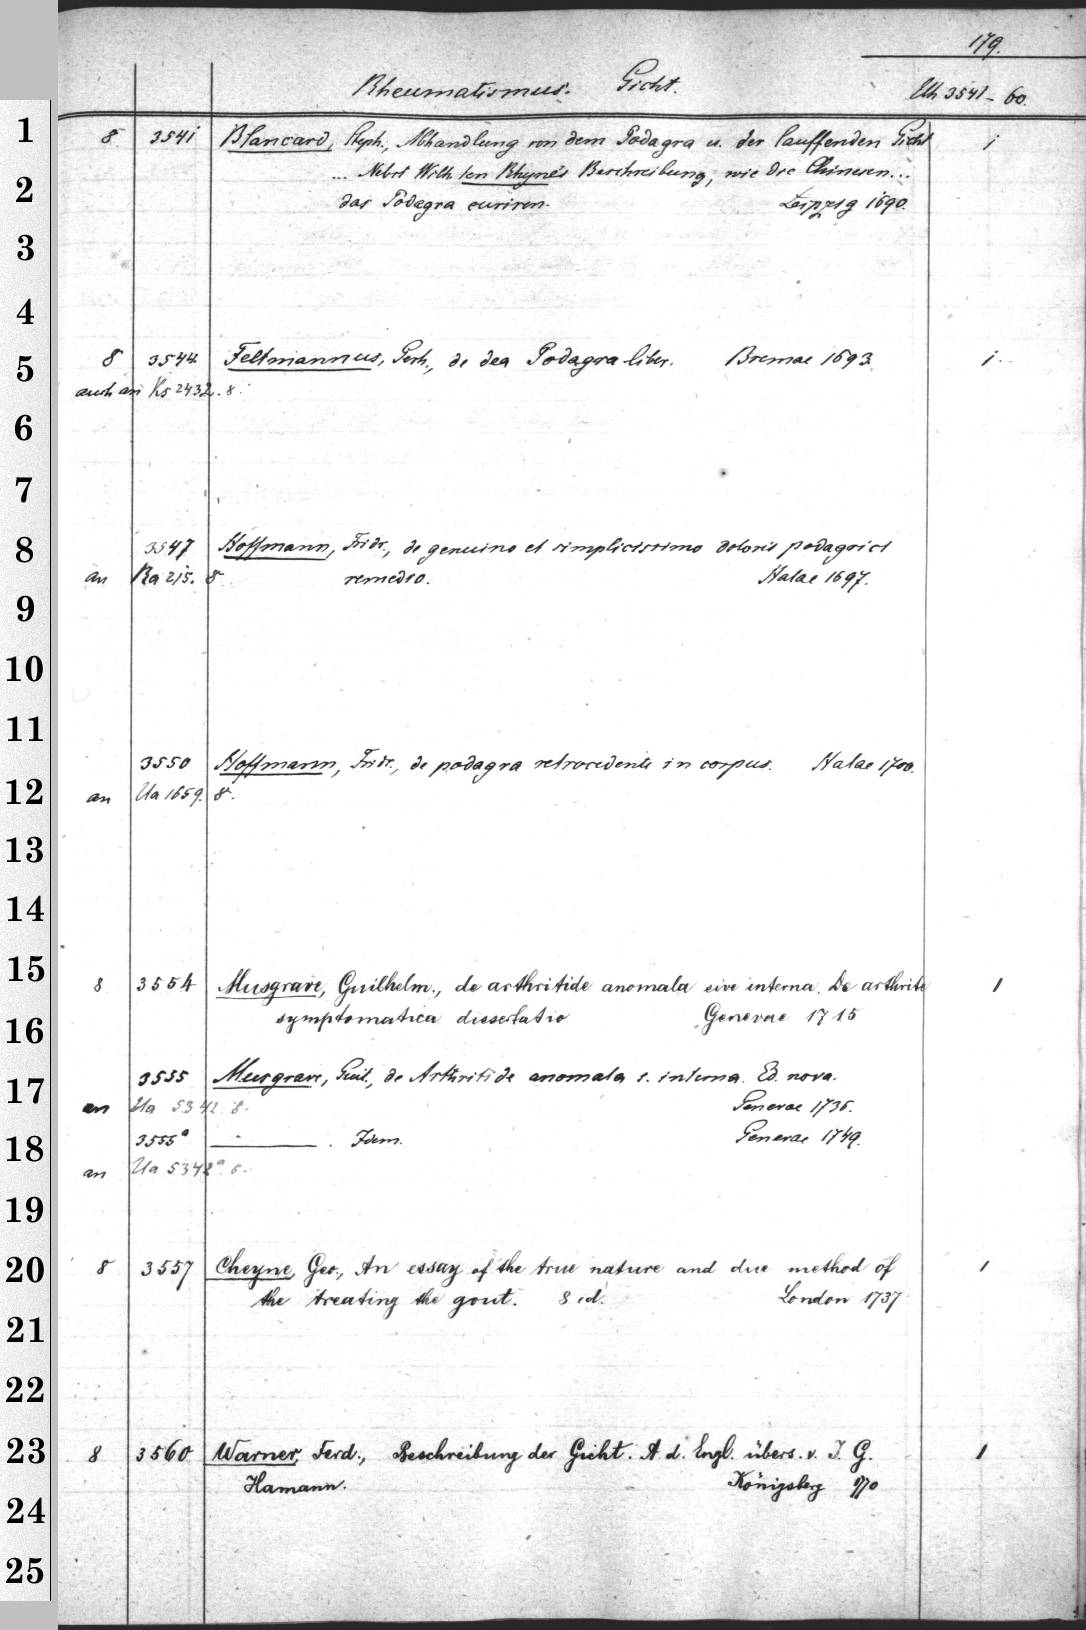 179.
Rheumatismus. Gicht. Uh 3541-60.
1
8 3541 Blancard, Steph., Abhandlung von dem Podagra u. der lauffenden Gicht 1
2
... Nebst Wilh ten Rhyne's Beschreibung, wie die Chinesen...
das Podagra curiren. Leipzig 1690.
3
4
5
8 3544 Feltmannus, Gerh., de dea Podagra liber. Bremae 1693. 1
auch an Ks 2432. 8.
6
7
8
3547 Hoffmann, Fridr., de genuino et simplicissimo doloris podagrici
an Ra 215. 8 remedio. Halae 1697.
9
10
11
3550 Hoffmann, Fridr., de podagra retrocedente in corpus. Halae 1700.
12
an Ua 1659. 8.
13
14
15
8 3554 Musgrave, Guilhelm., de arthritide anomala sive interna. De arthrite 1
16
symptomatica dissertatio Genevae 1715
3555 Musgrave, Guil., de Arthritide anomala s. interna. Ed. nova.
17
an Ua 5342. 8. Genevae 1736.
3555a ——— . Idem. Genevae 1749.
18
an Ua 5342a. 8.
19
20
8 3557 Cheyne, Geo., An essay of the true nature and due method of 1
the treating the gout. 8 ed. London 1737
21
22
23
8 3560 Warner, Ferd., Beschreibung der Gicht. A. d. Engl. übers. v. J. G. 1
Hamann. Königsberg 770
24
25